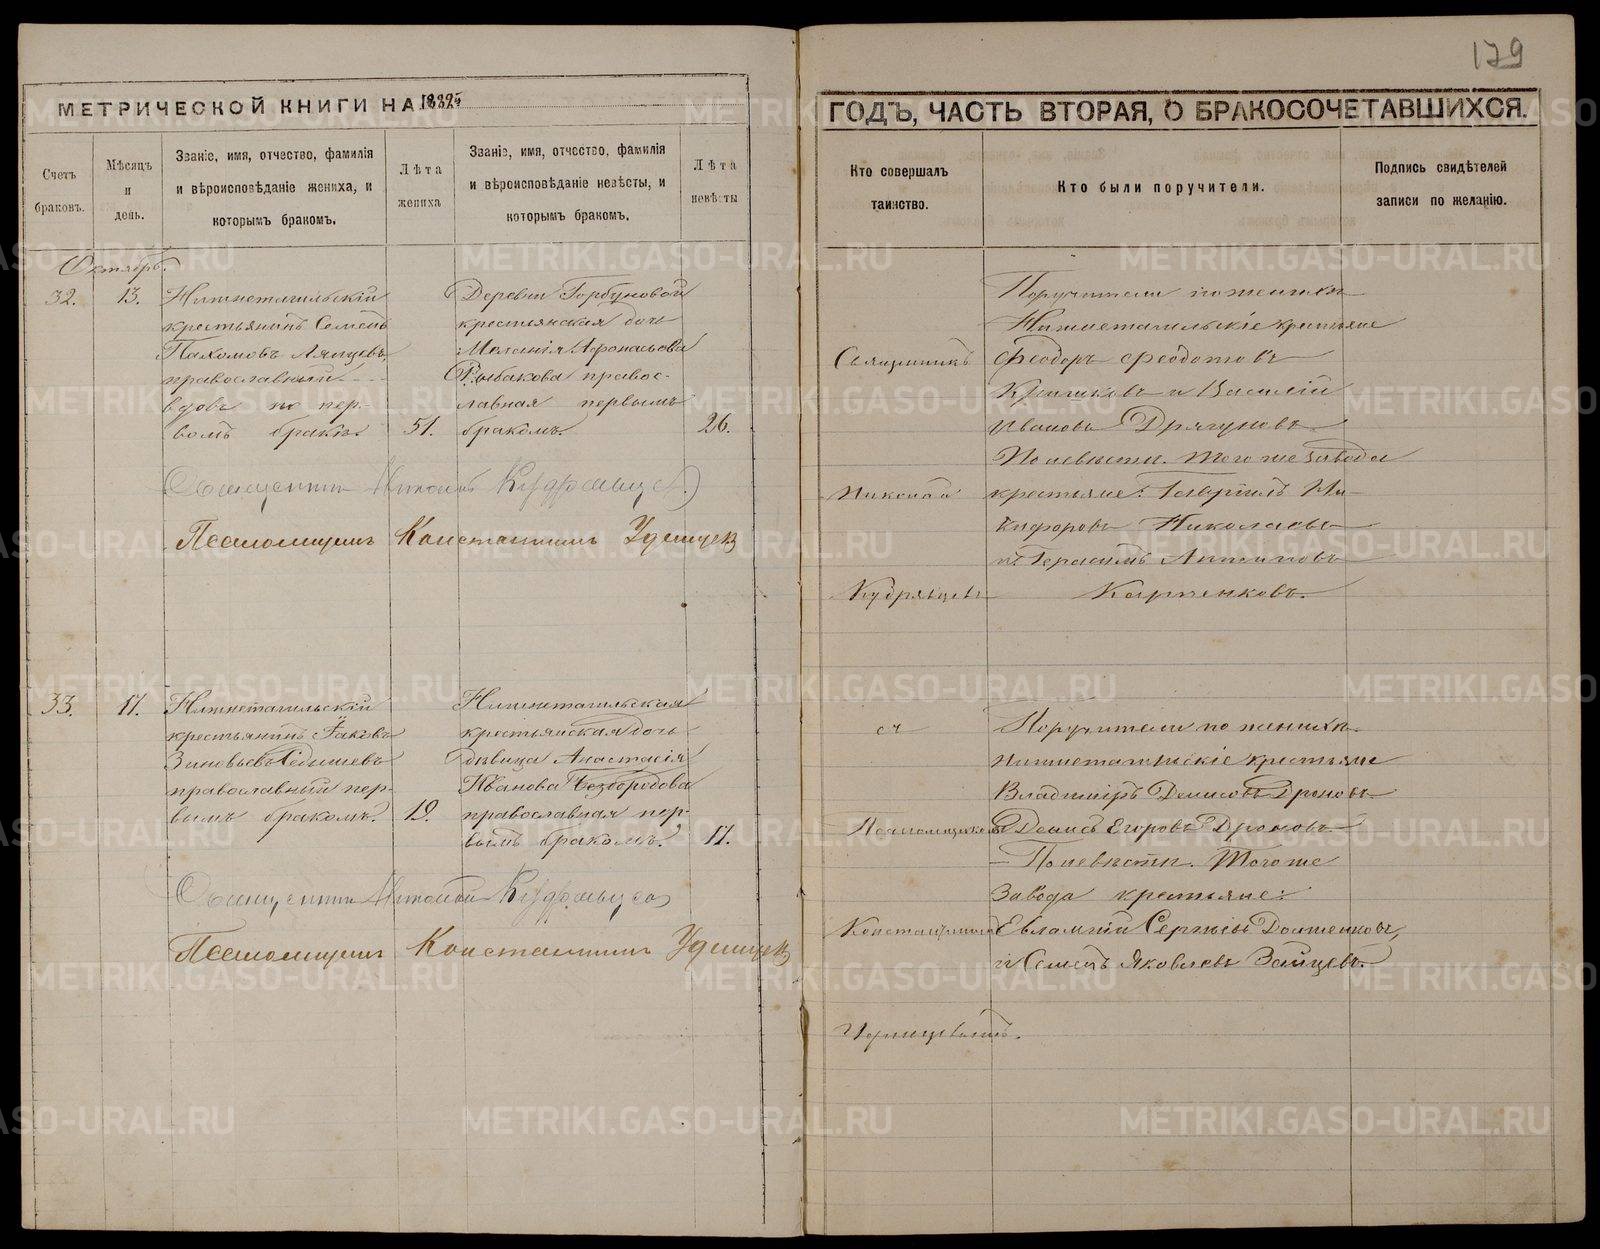 179
МЕТРИЧЕСКОЙ КНИГИ НА
ГОДЪ, ЧАСТЬ ВТОРАЯ, О БРАКОСОЧЕТАВШИХСЯ.
Счетъ браковъ.
Мѣсяцъ и день.
Званіе, имя, отчество, фамилія
и вѣроисповѣданіе жениха, и
которымъ бракомъ.
Лѣта
жениха
Званіе, имя, отчество, фамилія
и вѣроисповѣданіе невѣсты, и
которымъ бракомъ.
Лѣта
невѣсты
Кто совершалъ
таинство.
Кто были поручители.
Подпись свидѣтелей
записи по желанію.
Октябрь.
32.
13.
Нижнетагильскій
крестьянинъ Семенъ
Пахомовъ
православный
вдовъ по пер-
вомъ бракѣ.
51.
Деревни Горбуновой
крестьянская дочь
Меланія Афонасьева
Рыбакова правос-
лавная первымъ
бракомъ.
26.
Священникъ
Николай
Кудрявцевъ
Поручители по женихѣ
Нижнетагильскіе крестьяне
Феодоръ Феодотовъ
и Василій
Ивановъ Дрягуновъ
По невѣстѣ. Того же завода
крестьяне: Гавріилъ Ни-
кифоровъ Николаевъ
и Герасимъ Антиповъ
Карпенковъ.
Священникъ Николай Кудрявцевъ
Псаломщикъ Константинъ
33.
17.
Нижнетагильскій
крестьянинъ Іаковъ
Зиновьевъ
православный пер-
вымъ бракомъ.
19.
Нижнетагильская
крестьянская дочь
дѣвица Анастасія
Иванова Безбородова
православная пер-
вымъ бракомъ.
17.
съ
Псаломщикомъ
Константиномъ
Поручители по женихѣ
нижнетагильскіе крестьяне
Владиміръ Денисовъ Дроновъ
Денисъ Егоровъ Дроновъ
По невѣстѣ. Того же
завода крестьяне:
Евлампій Сергѣевъ
и Семенъ Яковлевъ Зайцевъ.
Священникъ Николай Кудрявцевъ
Псаломщикъ Константинъ
METRIKI.GASO-URAL.RU